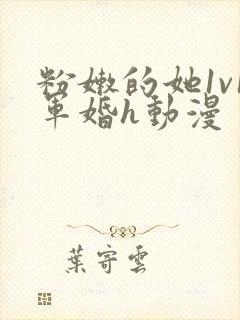 粉嫩的她1v1
軍婚h動漫
葉寄雲